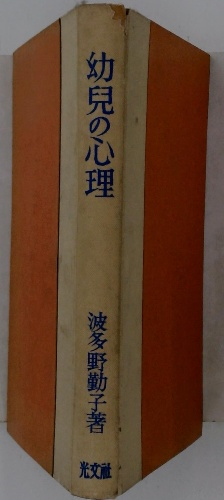 幼兒の心理
波多野勤子著
光文社